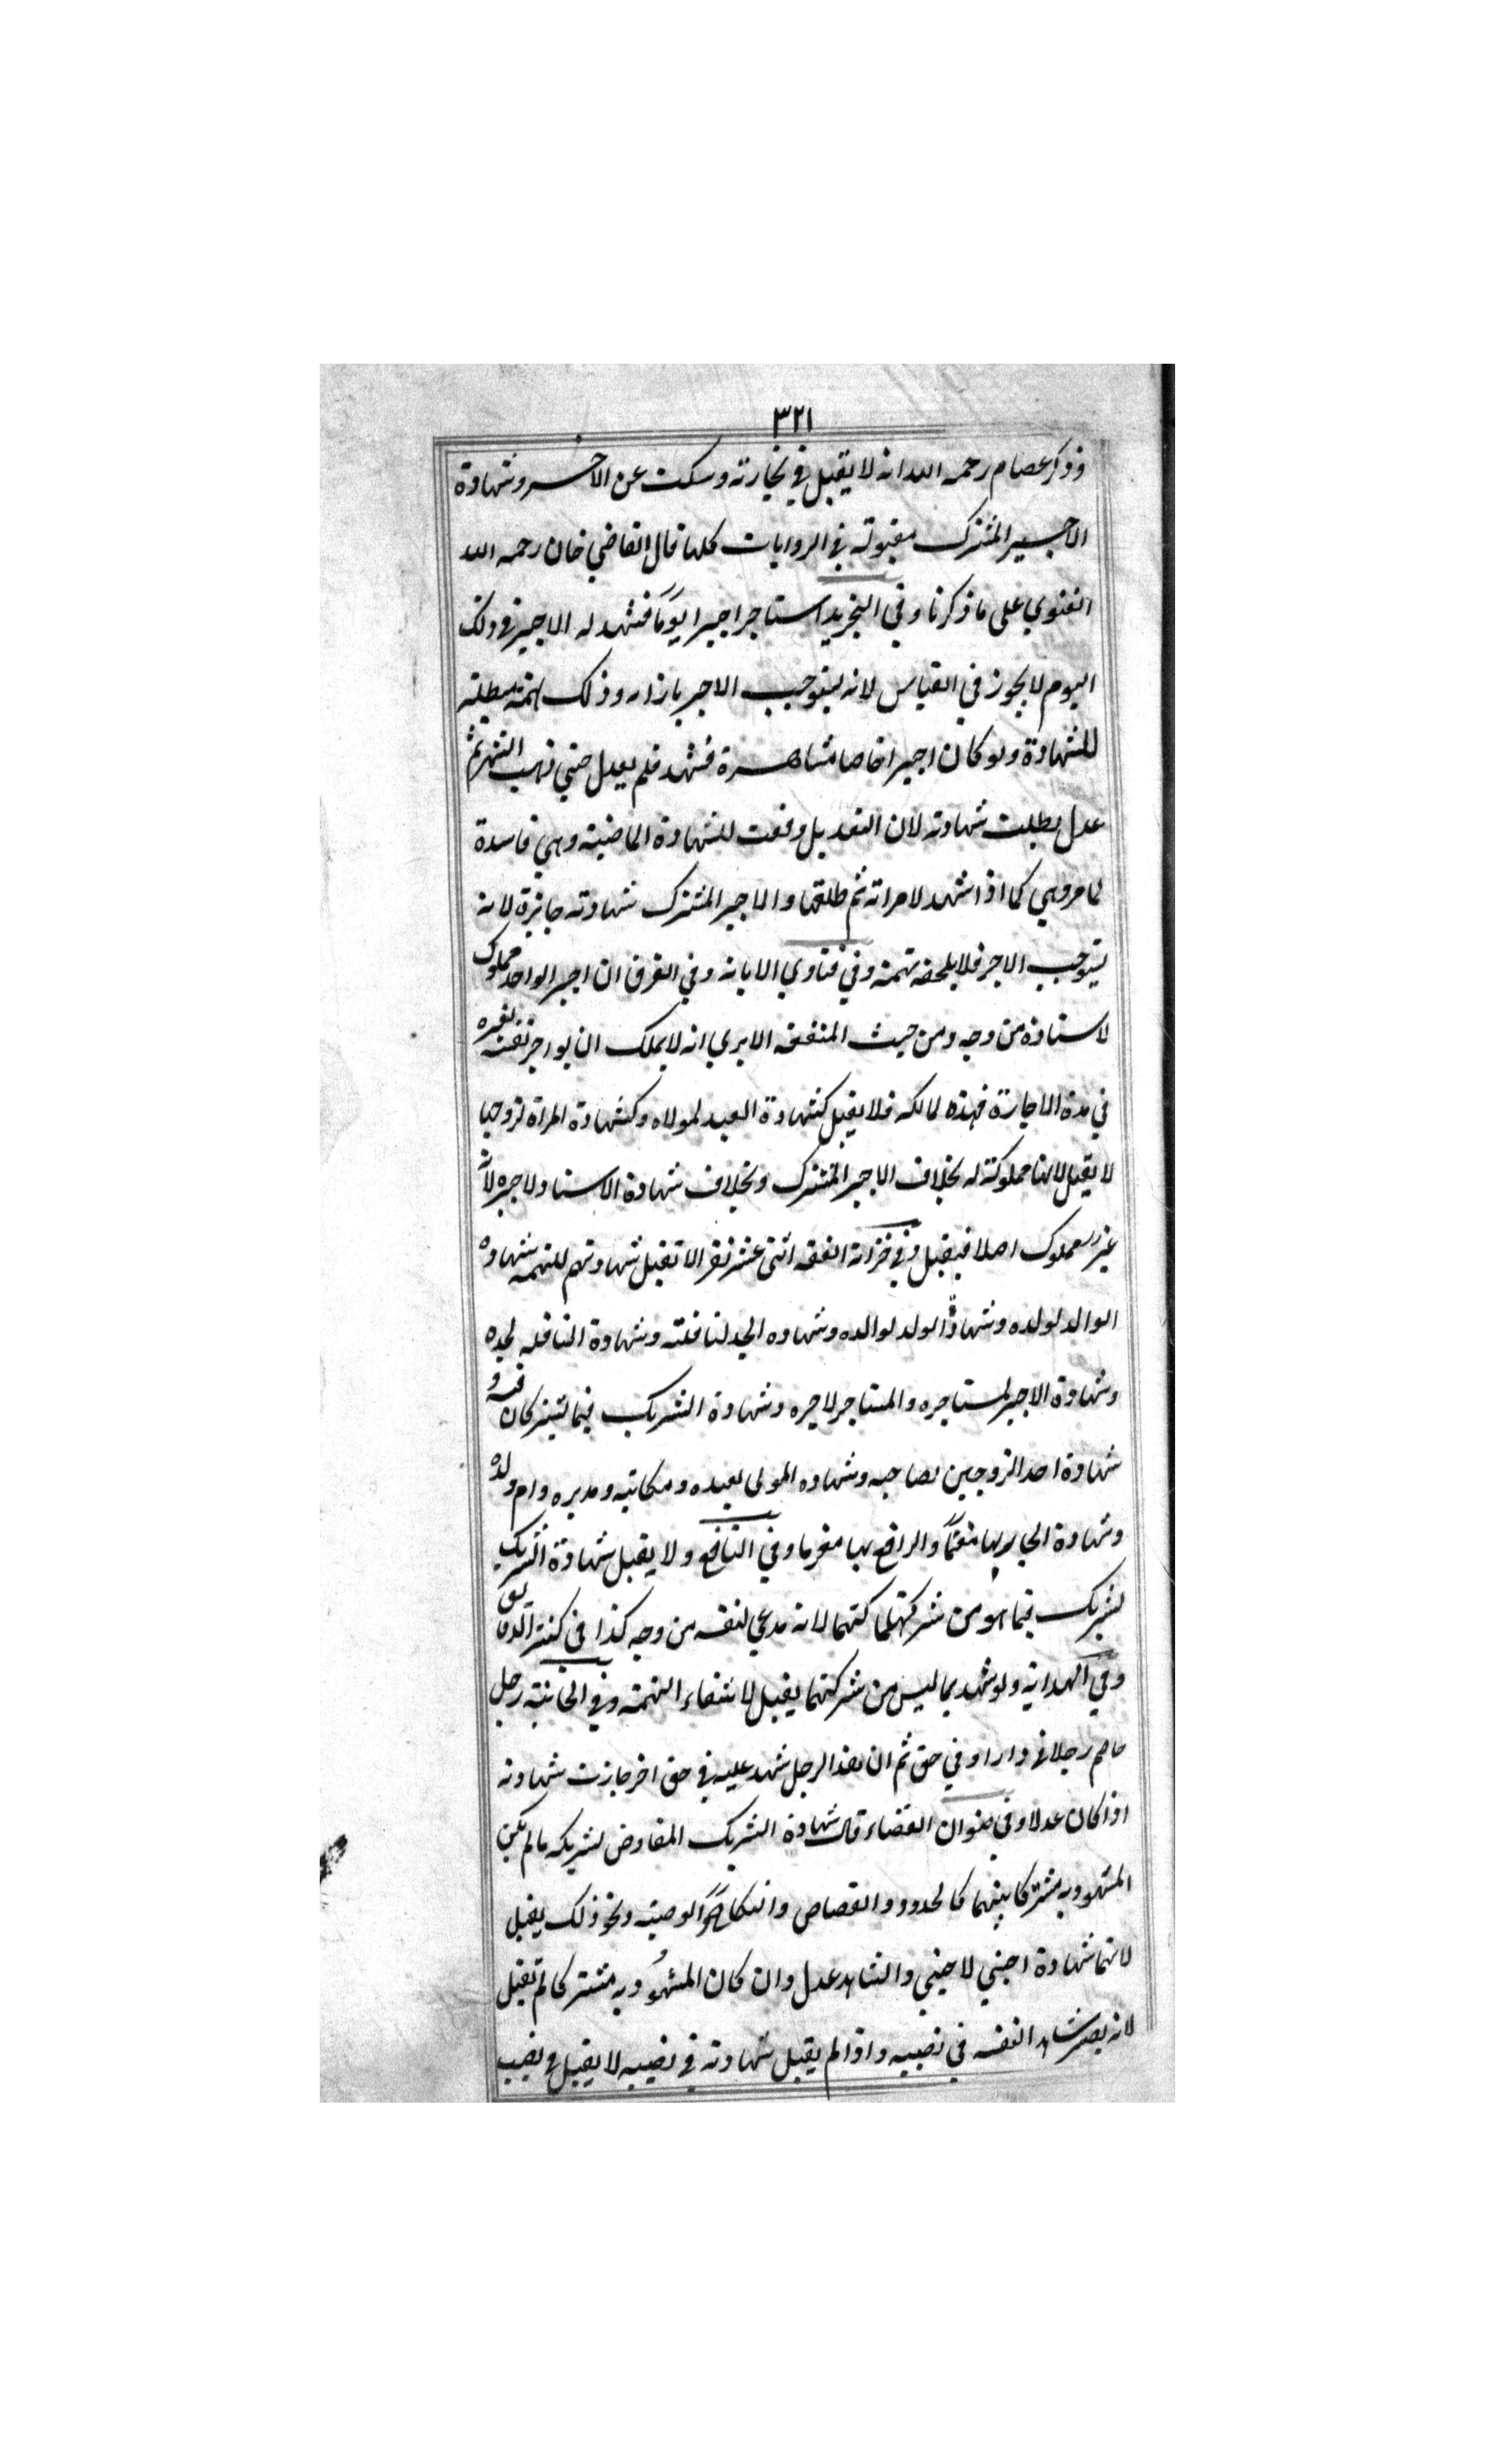 ٣٢١
وذكر عصام رحمه الله انه لا يقبل في تجارته وسكت عن الاخر وشهادة
الاجير المشترك مقبولة في الروايات كلها قال القاضي خان رحمه الله
الفتوي على ما ذكرنا وفي التجريد استاجر اجيرا يوما فشهد له الاجير في ذلك
اليوم لا يجوز في القياس لانه يستوجب الاجر بازاءه وذلك تهمة مبطلة
للشهادة ولو كان اجيرا خاصا مشاهرة فشهد فلم يعدل حتي ذهب الشهر ثم
عدل بطلت شهادته لان التعديل وقعت للشهادة الماضية وهي فاسدة
لما مر وهي كما اذا شهد لامراته ثم طلقها والاجير المشترك شهادته جايزة لانه
يستوجب الاجر فلا يلحقه تهمة وفي فتاوي الابانه وفي الفرق ان اجير الواحد مملوك
لاستاذه من وجه ومن حيث المنفعة الا يري انه لا يملك ان يواجر نفسه لغيره
في مدة الاجارة فهذه لمالكه فلا يقبل كشهادة العبد لمولاه وكشهادة المراة لزوجها
لا يقبل لانها مملوكة له بخلاف الاجير المشترك وبخلاف شهادة الاستاد لاجيره لانه
غير مملوك اصلا فيقبل وفي خزانة الفقه اثنى عشر نفر الا تقبل شهادتهم للتهمه شهادة
الوالد لولده وشهادة الولد لوالده وشهاده الجد لنافلته وشهادة النافله لجده
وشهادة الاجير لمستاجره والمستاجر لاجيره وشهادة الشريك فيما يشتركان فيه و
شهادة احد الزوجين لصاحبه وشهاده المولى لعبده ومكاتبه ومدبره وام ولده
وشهادة الجار بها مغنما والدافع بها مغرما وفي النافع ولا يقبل شهادة الشريك
لشريك فيما هو من شركتهما لانه مدعي لنفسه من وجه كذا في كنز الدقايق
وفي الهداية ولو شهد بما ليس من شركتهما يقبل لانتفاء التهمة وفي الخانية رجل
خاصم رجلا في دار او في حق ثم ان هذا الرجل شهد عليه في حق اخر جازت شهادته
اذا كان عدلا وفي صنوان القضاء قال شهادة الشريك المفاوض لشريكه ما لم يكن
المشهود به مشتركا بينهما كالحدود والقصاص والنكاح والوصية ونحو ذلك يقبل
لانها شهادة اجنبي لاجنبي والشاهد عدل وان كان المشهود به مشتركا لم تقبل
لانه يصير شاهدا لنفسه في نصيبه واذا لم يقبل شهادته في نصيبه لا يقبل في نصيب